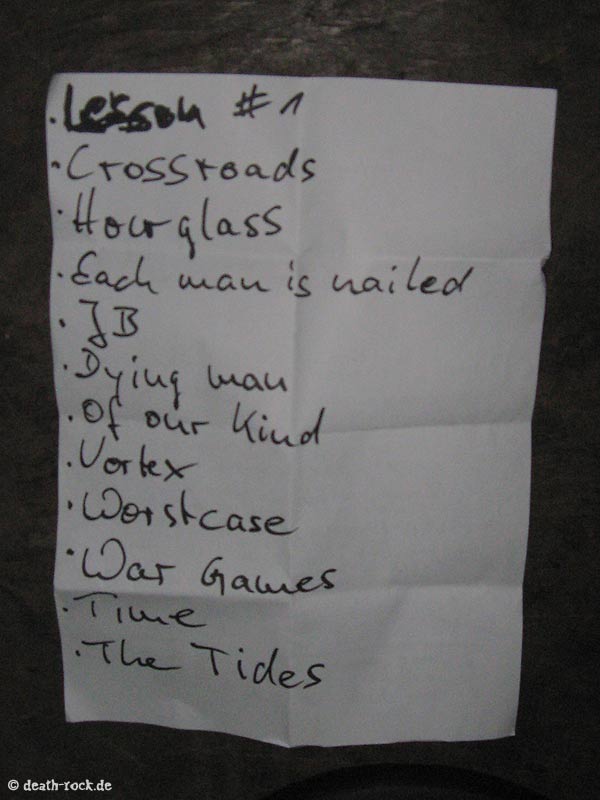 · Lesson #1
· Crossroads
· Hourglass
· Each man is nailed
· JB
· Dying man
· Of our Kind
· Vortex
· Worstcase
· War Games
· Time
· The Tides
© death-rock.de